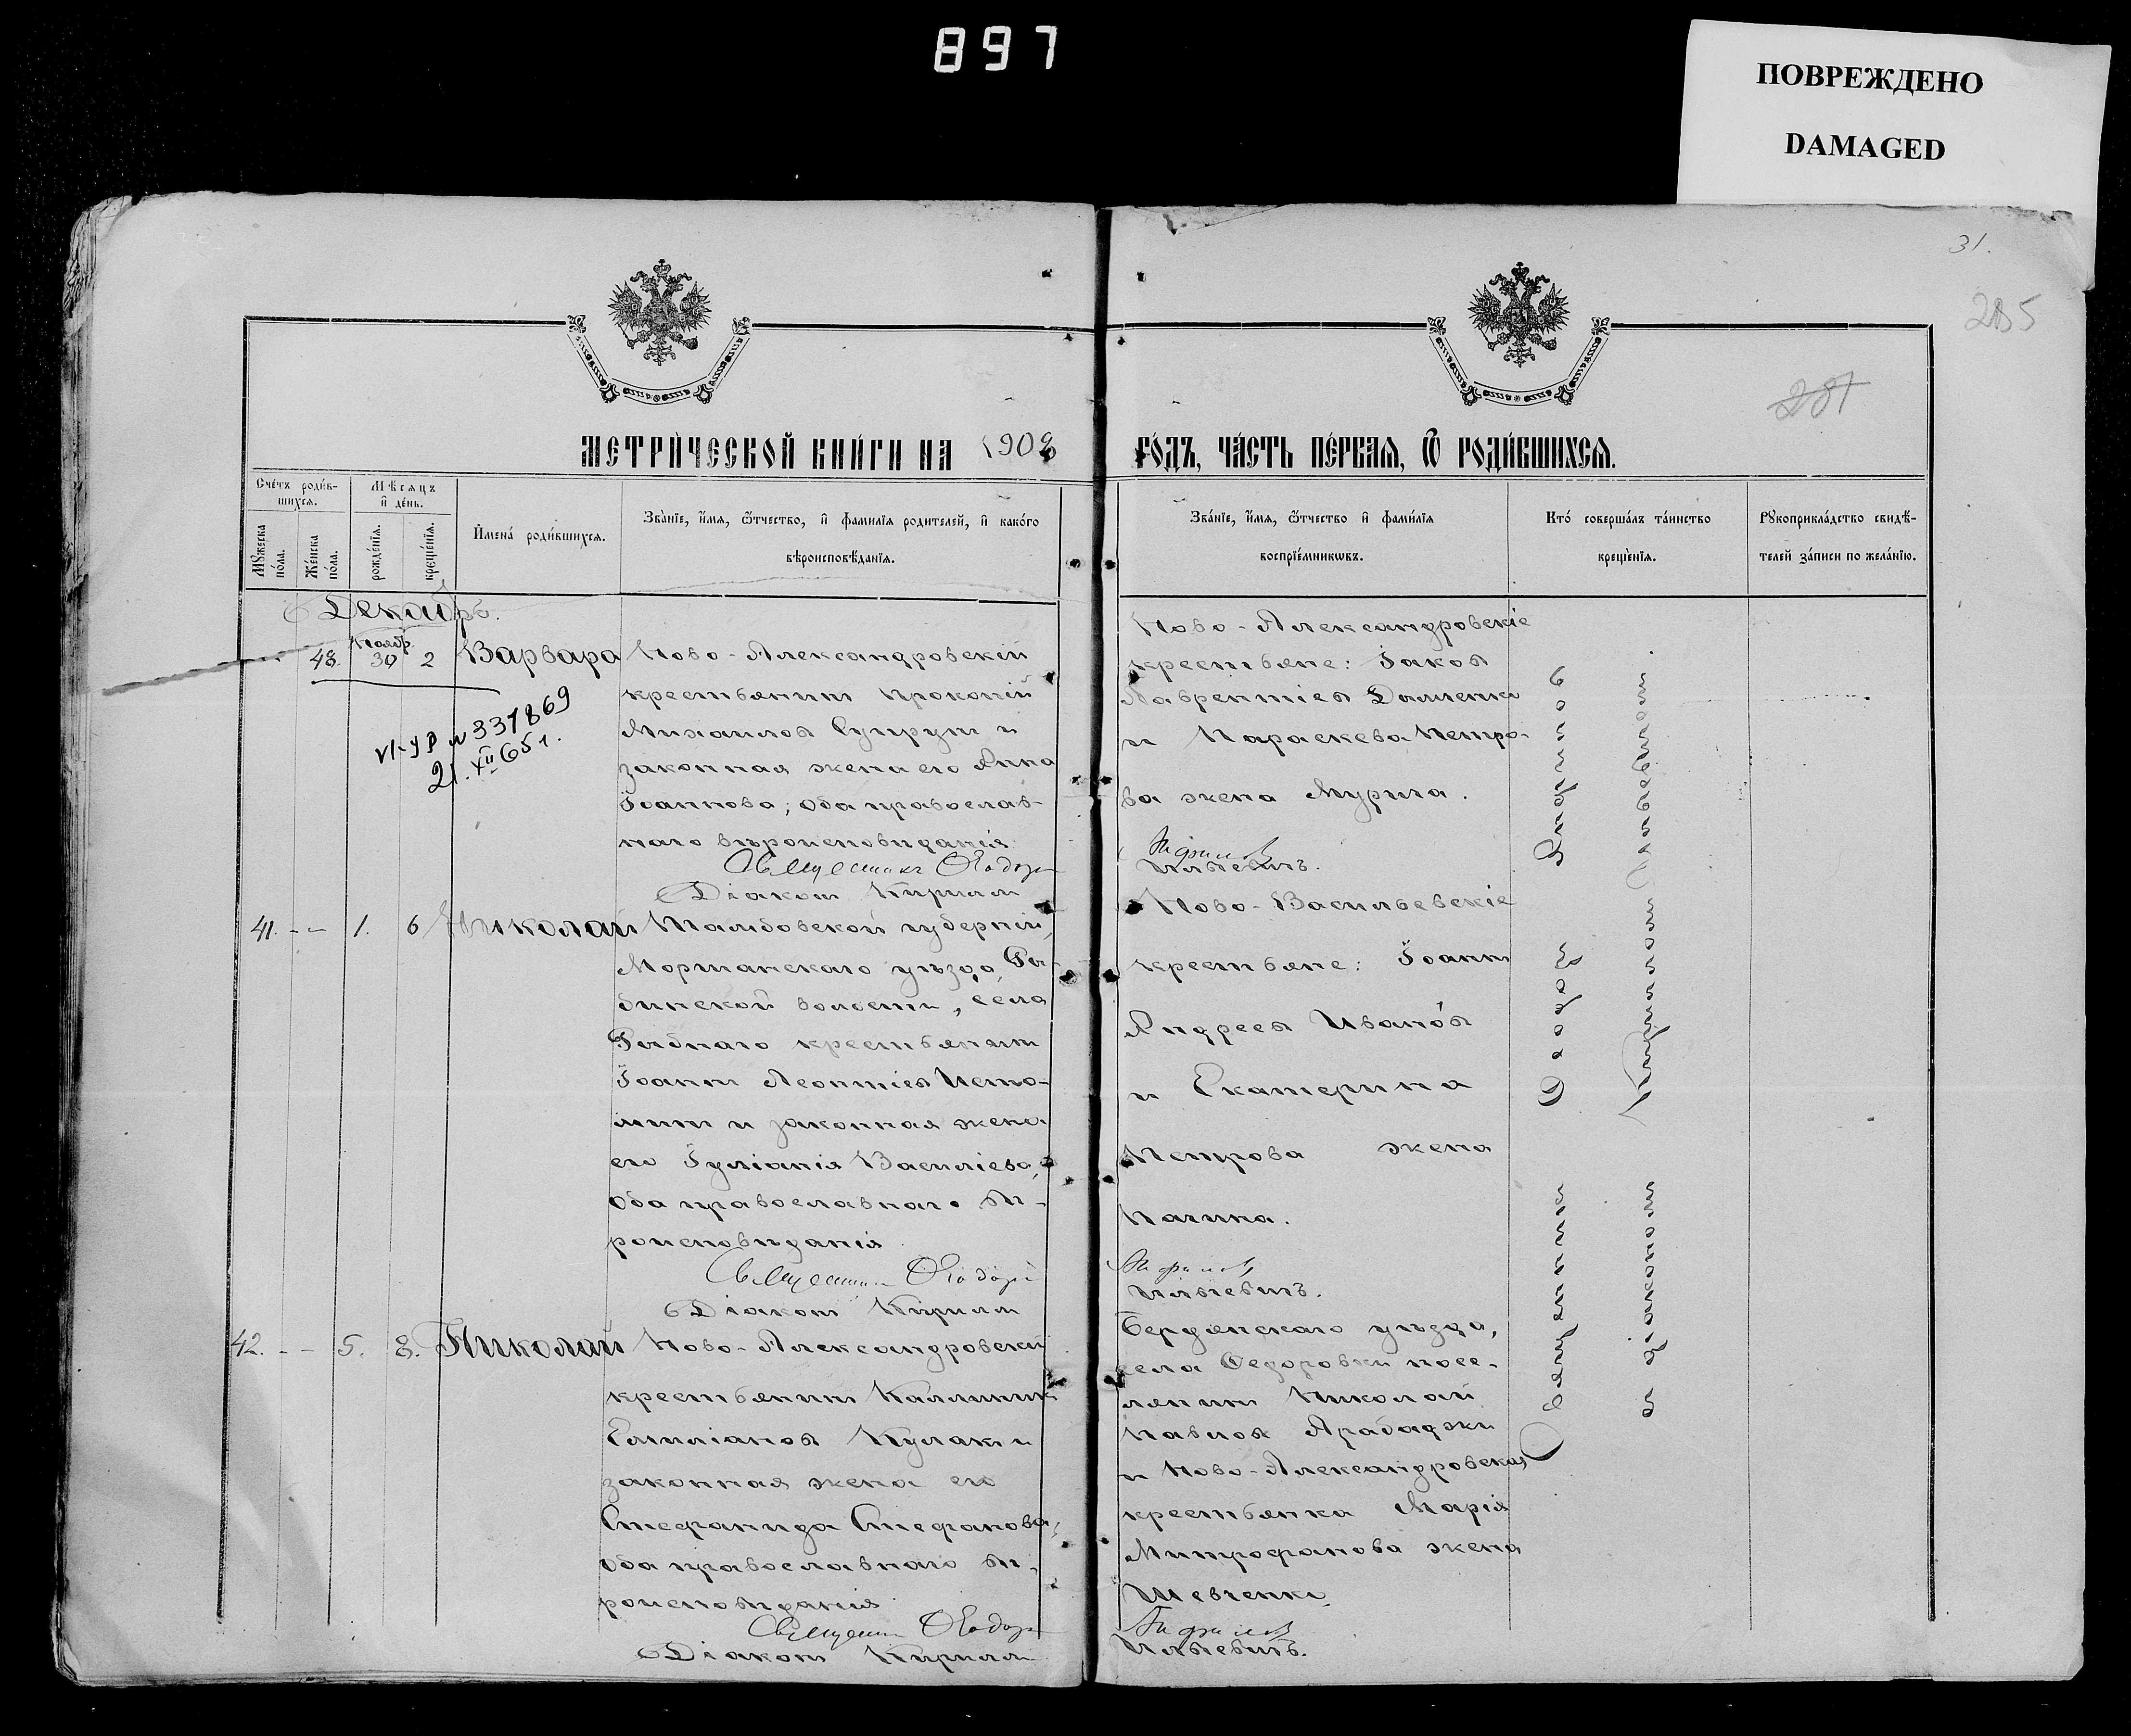 897
ПОВРЕЖДЕНО
DAMAGED
31.
285
281
МЕТРИ́ЧЕСКОЙ КНИ́ГИ НА 1908
ГО́ДЪ, ЧА́СТЬ ПЕ́РВАЯ, Ѽ РОДИ́ВШИХСЯ.
Сче́тъ роди́в-
шихся.
Мѣ́сяцъ
и҆ де́нь.
Мꙋ́жеска
по́ла.
Же́нска
по́ла.
рожде́нїя.
креще́нїя.
И҆мена́ роди́вшихся.
Зва́нїе, и҆́мя, ѻ҆́тчество, и҆ фами́лїя роди́телей, и҆ како́го
вѣроисповѣ́данїя.
Зва́нїе, и҆́мя, ѻ҆́тчество и҆ фами́лїя
воспрїе́мникѡвъ.
Кто́ соверша́лъ та́инство
креще́нїя.
Рꙋкоприкла́дство свидѣ́-
телей за́писи по жела́нїю.
Декабрь.
48. Ноябр. 30 2 Варвара
Ново-Александровскій
крестьянинъ Прокопій
Михаиловъ Супрунъ и
законная жена его Анна
Іоаннова; оба православ-
наго вѣроисповѣданія
Священникъ Ѳеодоръ
Діаконъ Кириллъ
№ 337869
21.XII 65 г.
Ново-Александровскіе
крестьяне: Іаковъ
Лаврентіевъ
и Параскева Петро-
ва жена Мурыга.
Андріевъ
Ильевичъ.
41. - - 1. 6 Николай
Тамбовской губерніи,
Моршанскаго уѣзда, Ры-
бинской волости, села
Рыбнаго крестьянинъ
Іоаннъ Леонтіевъ Исто-
минъ и законная жена
его Іуліанія Василіева,
оба православнаго вѣ-
роисповѣданія
Священникъ Ѳеодоръ
Діаконъ Кириллъ
Ново-Васильевскіе
крестьяне: Іоаннъ
Андреевъ Ивановъ
и Екатерина
Петрова жена
Ильевичъ.
42. - - 5. 8. Николай
Ново-Александровскій
крестьянинъ Каллиникъ
Емиліановъ Кулакъ и
законная жена его
Стефанида Стефанова,
оба православнаго вѣ-
роисповѣданія
Священникъ Ѳеодоръ
Діаконъ Кириллъ
Бердянскаго уѣзда,
села Ѳедоровки посе-
лянинъ Николай
Павловъ Арабаджи
и Ново-Александровская
крестьянка Марія
Митрофанова жена
Шевченко
Ильевичъ.
Священникъ Ѳеодоръ
и діакономъ Кирилломъ Ильевичемъ.